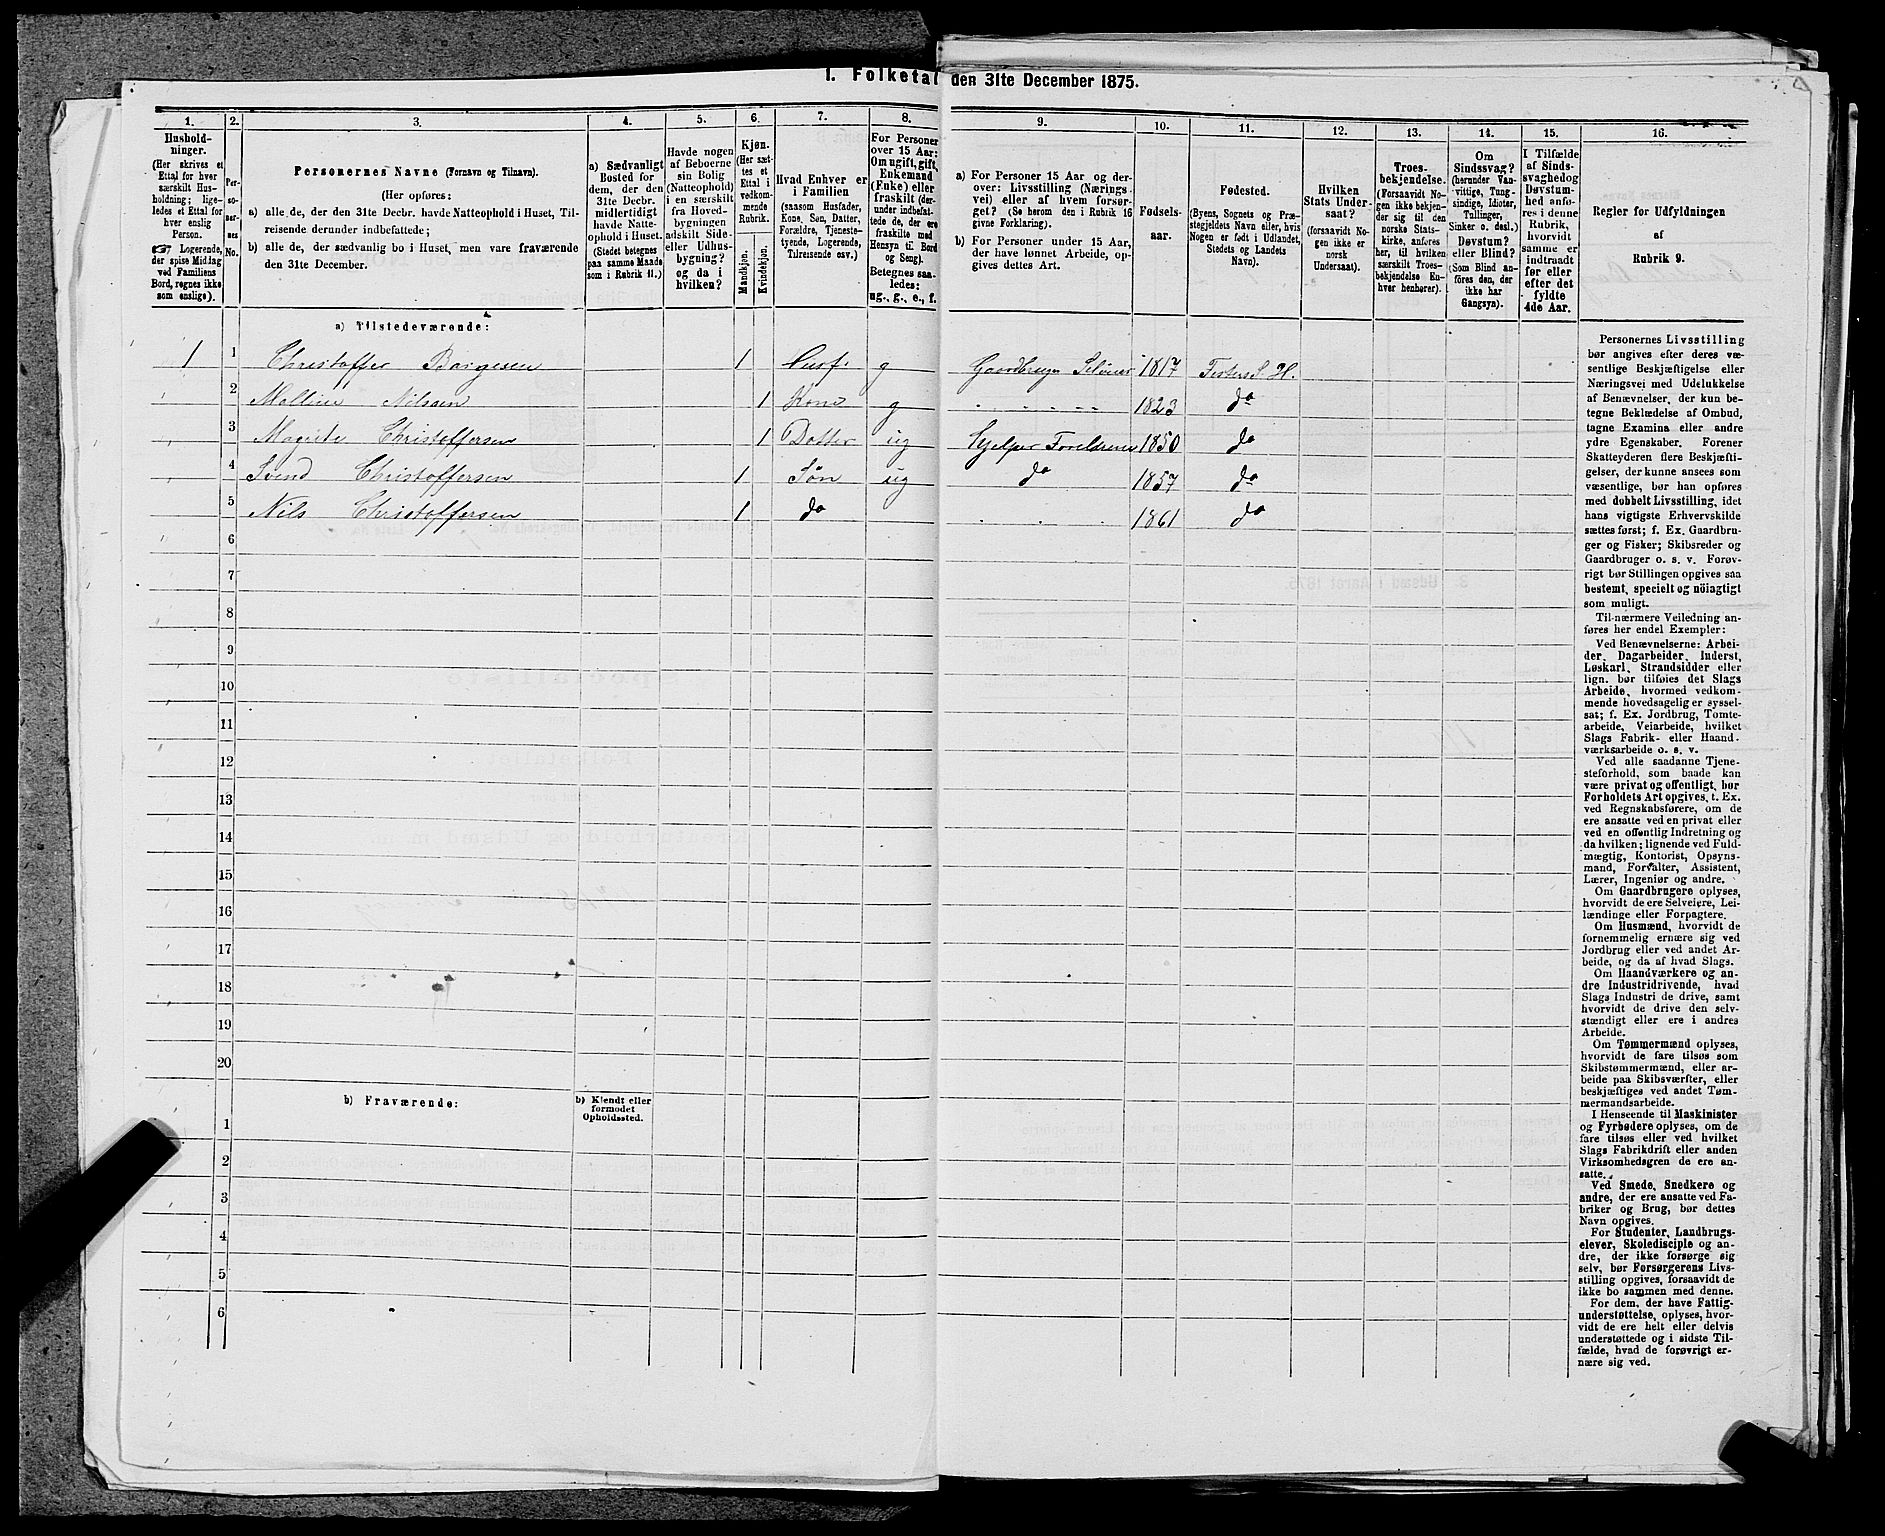 1. Folketal den 31te December 1875.
1. 2. 3. 4. 5. 6. 7. 8. 9. 10. 11. 12. 13. 14. 15. 16.
Hushold-
ninger.
(Her skrives et
Ettal for hver
særskilt Hus-
holdning; lige-
ledes et Ettal for
hver enslig
Person.
☞ Logerende,
der spise Middag
ved Familiens
Bord, regnes ikke
som enslige).
Per-
so-
ner-
nes
No.
Personernes Navne (Fornavn og Tilnavn).
(Her opføres:
a) alle de, der den 31te Decbr. havde Natteophold i Huset, Til-
reisende derunder indbefattede;
b) alle de, der sædvanlig bo i Huset, men vare fraværende
den 31te December.
a) Sædvanligt
Bosted for
dem, der den
31te Decbr.
midlertidigt
havde Natte-
ophold i Huset.
(Stedet betegnes
paa samme Maade
som i Rubrik 11.)
Havde nogen
af Beboerne
sin Bolig
(Natteophold)
i en særskilt
fra Hoved-
bygningen
adskilt Side-
eller Udhus-
bygning?
og da i
hvilken?
Kjøn.
(Her sæt-
tes et
Ettal i
vedkom-
mende
Rubrik.
Mandkjøn.
Kvindekjøn.
Hvad Enhver er
i Familien
(saasom Husfader,
Kone, Søn, Datter,
Forældre, Tjeneste-
tyende, Logerende,
Tilreisende osv.)
For Personer
over 15 Aar:
Om ugift, gift,
Enkemand
(Enke) eller
fraskilt (der-
under indbefat-
tede de, der ere
fraskilte med
Hensyn til Bord
og Seng).
Betegnes saa-
ledes:
ug., g., e., f.
a) For Personer 15 Aar og der-
over: Livsstilling (Nærings-
vei) eller af hvem forsør-
get? (Se herom den i Rubrik 16
givne Forklaring).
b) For Personer under 15 Aar,
der have lønnet Arbeide, op-
gives dettes Art.
Fødsels-
aar.
Fødested.
(Byens, Sognets og Præ-
stegjeldets Navn eller, hvis
Nogen er født i Udlandet,
Stedets og Landets
Navn).
Hvilken
Stats Under-
saat?
(forsaavidt No-
gen ikke er
norsk
Undersaat).
Troes-
bekjendelse.
(Forsaavidt No-
gen ikke bekjen-
der sig til den
norske Stats-
kirke, anføres
her, til hvilken
særskilt Troes-
bekjendelse En-
hver henhører).
Om
Sindssvag?
(herunder Van-
vittige, Tung-
sindige, Idioter,
Tullinger,
Sinker o. desl.)
Døvstum?
eller Blind?
(Som Blind an-
føres den, der
ikke har
Gangsyn).
I Tilfælde
af Sinds-
svaghed og
Døvstum-
hed anfø-
res i denne
Rubrik,
hvorvidt
samme er
indtraadt
før eller
efter det
fyldte
4de Aar.
Regler for Udfyldningen
af
Rubrik 9.
a) Tilstedeværende:
1 1 Christoffer Børgesen 1 Husf. g Gaardbruger Seleier 1817 H.
2 Nilsen 1 Kone g 1823 do
3 Magrete Christoffersen 1 Datter ug Hjelper Foreldrene 1850 do
4 Svend Christoffersen 1 Søn ug do 1857 do
5 Nils Christoffersen 1 do 1861 do
6
7
8
9
10
11
12
13
14
15
16
17
18
19
20
b) Fraværende:
b) Kjendt eller
formodet
Opholdssted.
1
2
3
4
5
6
Personernes Livsstilling
bør angives efter deres væ-
sentlige Beskjæftigelse eller
Næringsvei med Udelukkelse
af Benævnelser, der kun be-
tegne Beklædelse af Ombud,
tagne Examina eller andre
ydre Egenskaber. Forener
Skatteyderen flere Beskjæfti-
gelser, der kunne ansees som
væsentlige, bør han opføres
med dobbelt Livsstilling, idet
hans vigtigste Erhvervskilde
sættes først; f. Ex. Gaardbru-
ger og Fisker; Skibsreder og
Gaardbruger o. s. v. Forøv-
rigt bør Stillingen opgives saa
bestemt, specielt og nøiagtigt
som muligt.
Til nærmere Veiledning an-
føres her endel Exempler:
Ved Benævnelserne: Arbei-
der, Dagarbeider, Inderst,
Løskarl, Strandsidder eller
lign. bør tilføies det Slags
Arbeide, hvormed vedkom-
mende hovedsagelig er syssel-
sat; f. Ex. Jordbrug, Tomte-
arbeide, Veiarbeide, hvilket
Slags Fabrik- eller Haand-
værksarbeide o. s. v.
Ved alle saadanne Tjene-
steforhold, som baade kan
være privat og offentligt, bør
Forholdets Art opgives, t. Ex.
ved Regnskabsførere, om de
ere ansatte ved en privat eller
ved en offentlig Indretning og
da hvilken; lignende ved Fuld-
mægtig, Kontorist, Opsyns-
mand, Forvalter, Assistent,
Lærer, Ingeniør og andre.
Om Gaardbrugere oplyses,
hvorvidt de ere Selveiere, Lei-
lændinge eller Forpagtere.
Om Husmænd, hvorvidt de
fornemmelig ernære sig ved
Jordbrug eller ved andet Ar-
beide, og da af hvad Slags.
Om Haandværkere og an-
dre Industridrivende, hvad
Slags Industri de drive, samt
hvorvidt de drive den selv-
stændigt eller ere i andres
Arbeide.
Om Tømmermænd oplyses,
hvorvidt de fare tilsøs som
Skibstømmermænd, eller ar-
beide paa Skibsværfter, eller
beskjæftiges ved andet Tøm-
mermandsarbeide.
I Henseende til Maskinister
og Fyrbødere oplyses, om de
fare tilsøs eller ved hvilket
Slags Fabrikdrift eller anden
Virksomhedsgren de ere an-
satte.
Ved Smede, Snedkere og
andre, der ere ansatte ved Fa-
briker og Brug, bør dettes
Navn opgives.
For Studenter, Landbrugs-
elever, Skoledisciple og an-
dre, der ikke forsørge sig
selv, bør Forsørgerens Livs-
stilling opgives, forsaavidt de
ikke bo sammen med denne.
For dem, der have Fattig-
understøttelse, oplyses, hvor-
vidt de ere helt eller delvis
understøttede og i sidste Til-
fælde, hvad de forøvrigt er-
nære sig ved.